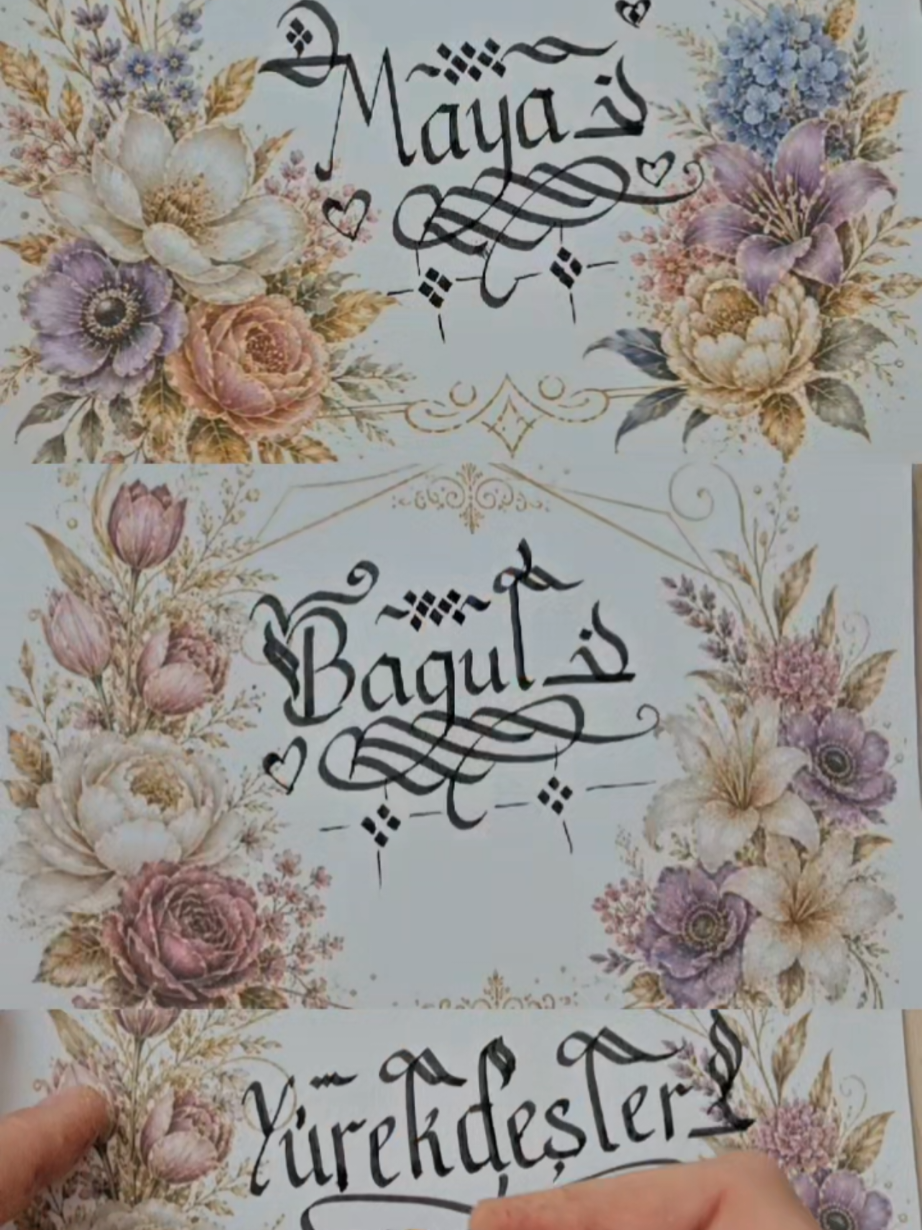 Maya
Bagul
Yürekdeşler